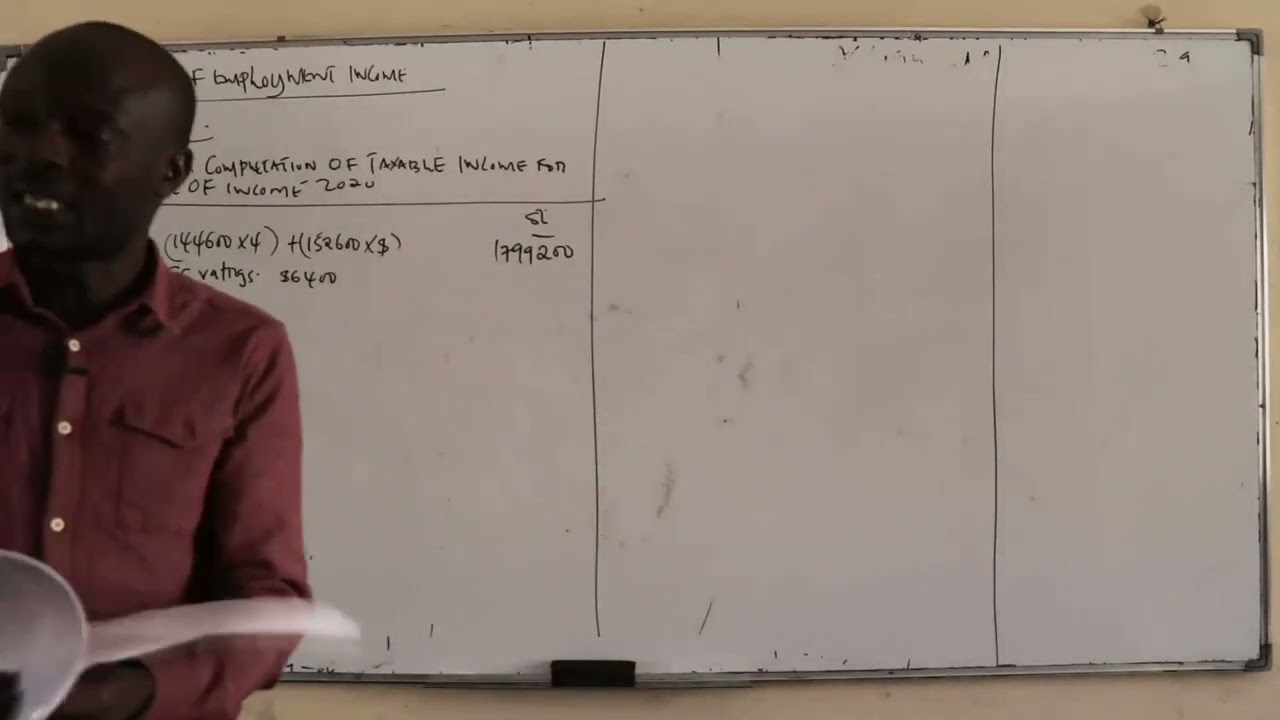 F EMPLOYMENT INCOME
COMPUTATION OF TAXABLE INCOME FOR
OF INCOME 2020
Sh
(144600 x 4) + (152600 x 8) 1799200
ratings. 36400